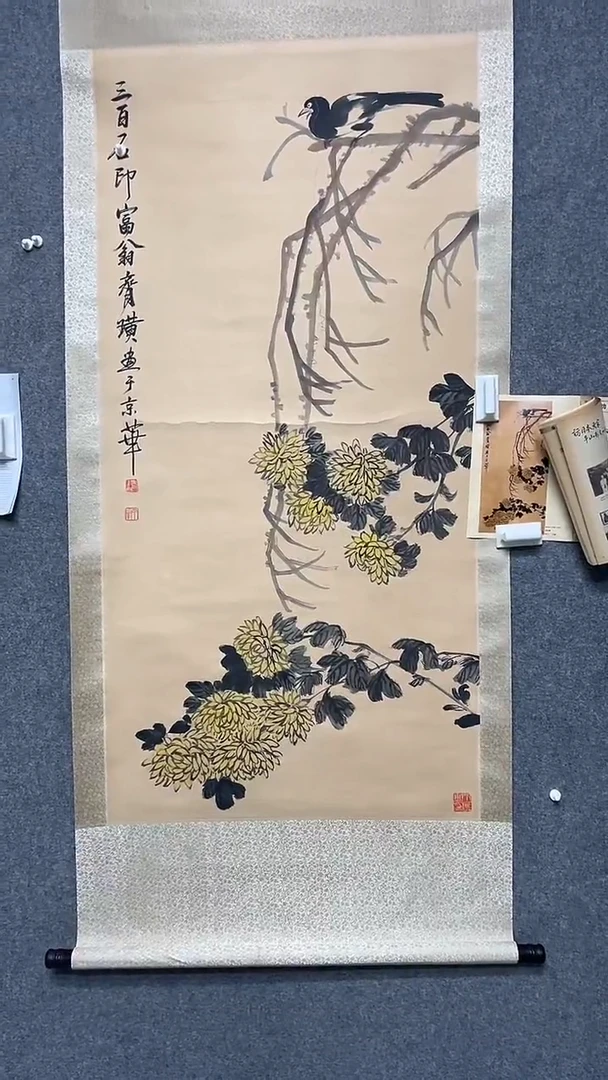 三百石印富翁齊璜畫于京華